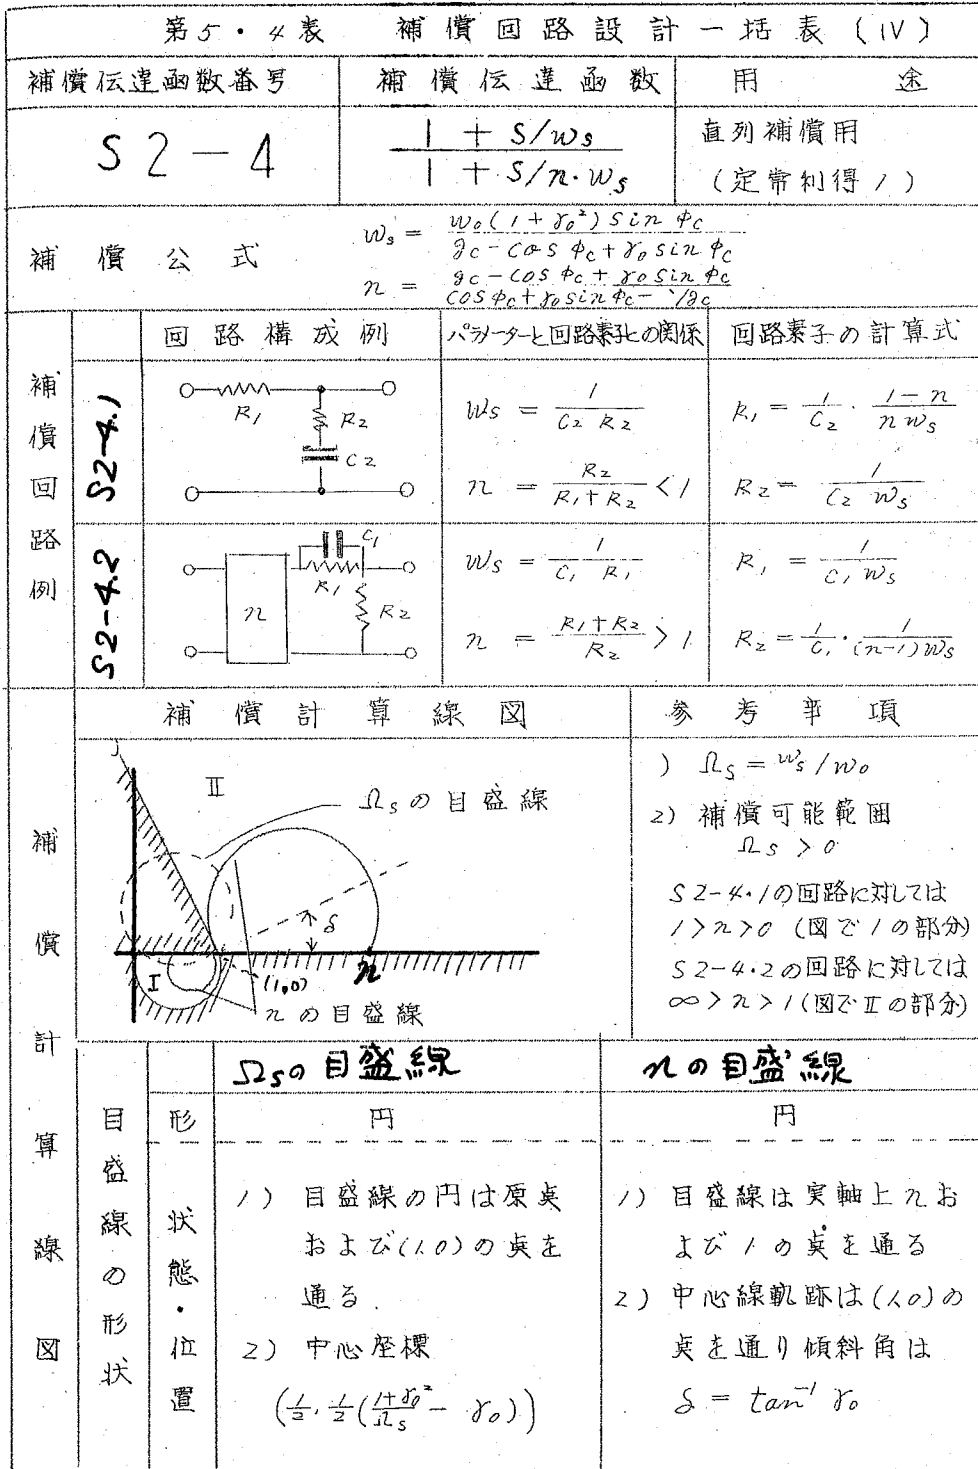 第5・4表 補償回路設計一括表(IV)
補償伝達函数番号 補償伝達函数 用途
S2-4 (1 + S/ws)/(1 + S/n・ws) 直列補償用
(定常利得1)
補償公式
ws = w0(1+γ0²)sin φc/(gc-cos φc+γ0 sin φc)
n = (gc-cos φc+γ0 sin φc)/(cos φc+γ0 sin φc-1/gc)
補償回路例
回路構成例 パラメーターと回路素子との関係 回路素子の計算式
S2-4.1
R1
R2
C2
ws = 1/(C2 R2)
n = R2/(R1+R2) < 1
R1 = 1/C2・(1-n)/(n ws)
R2 = 1/(C2 ws)
S2-4.2
n
C1
R1
R2
ws = 1/(C1 R1)
n = (R1+R2)/R2 > 1
R1 = 1/(C1 ws)
R2 = 1/C1・1/((n-1)ws)
補償計算線図
補償計算線図 参考事項
II
Ωsの目盛線
δ
I
(1,0)
n
nの目盛線
) Ωs = ws/w0
2) 補償可能範囲
Ωs > 0
S2-4・1の回路に対しては
1>n>0 (図で1の部分)
S2-4・2の回路に対しては
∞>n>1(図でIIの部分)
目盛線の形状
Ωsの目盛線 nの目盛線
形 円 円
状態・位置
1) 目盛線の円は原点
および(1.0)の点を
通る.
2) 中心座標
(1/2, 1/2((1+γ0²)/Ωs - γ0))
1) 目盛線は実軸上nお
よび1の点を通る
2) 中心線軌跡は(1.0)の
点を通り傾斜角は
δ = tan⁻¹ γ0